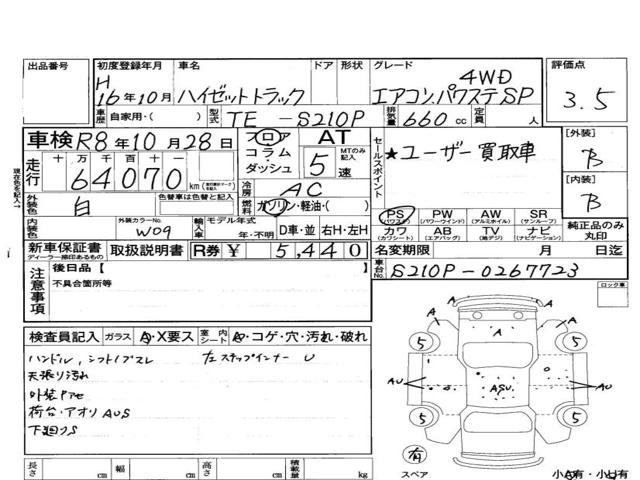 出品番号
初度登録年月 車名 ドア 形状 グレード 評価点
H 16年10月 ハイゼットトラック 4WD エアコン.パワステSP 3.5
車歴 自家用・( ) 型式 TE-S210P 排気量 660cc 定員 人
車検 R8年10月28日
フロア コラム ダッシュ AT MTのみ記入 5速
セールスポイント ★ユーザー買取車
[外装] B
[内装] B
現在色を記入→
走行 十 万 千 百 十 一
64070 km
冷房 AC
燃料 ガソリン・軽油・( )
外装色 白 色替車は色替と記入
内装色 外装カラーNo. W09 輸入車 モデル年式 年・不明 D車・並 右H・左H
PS (パワステ) PW (パワーウインド) AW (アルミホイル) SR (サンルーフ)
カワ (カワシート) AB (エアバッグ) TV (地デジ) ナビ (ナビゲーション)
純正品のみ丸印
新車保証書 ディーラー捺印あるもの 取扱説明書 R券 ¥ 5,440
名変期限 月 日迄
車台No. S210P-0267723
注意事項 後日品【 】
不具合箇所等
ロック車
検査員記入 ガラス A・X要ス 室内シート A・コゲ・穴・汚れ・破れ
ハンドル,シフトノブスレ 左ステップインナー U
天張り汚れ
外装
荷台・アオリ AUS
下廻りS
A A A
5 5
AU ASU AU
5 5
有
スペア
小A有・小U有
長さ cm 幅 cm 高さ cm 積載量 kg